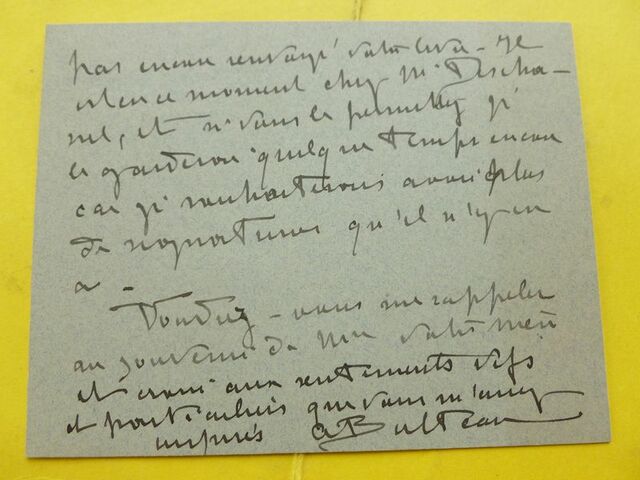 pas encore renvoyé votre livre - Il
est en ce moment chez Mr Descha-
nel, et si vous le permettez je
le garderai quelque temps encore
car je souhaiterais avoir plus
de signatures qu'il n'y en
a -
Voudrez-vous me rappeler
au souvenir de Mme votre mère
et croire aux sentiments vifs
et particuliers que vous m'avez
inspirés ABulteau